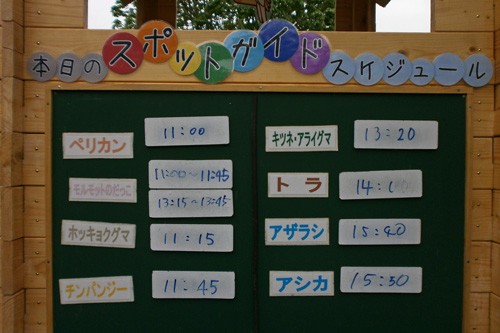 本日のスポットガイドスケジュール
ペリカン 11:00
モルモットのだっこ 11:00~11:45
13:15~13:45
ホッキョクグマ 11:15
チンパンジー 11:45
キツネ・アライグマ 13:20
トラ
アザラシ
アシカ 15:50